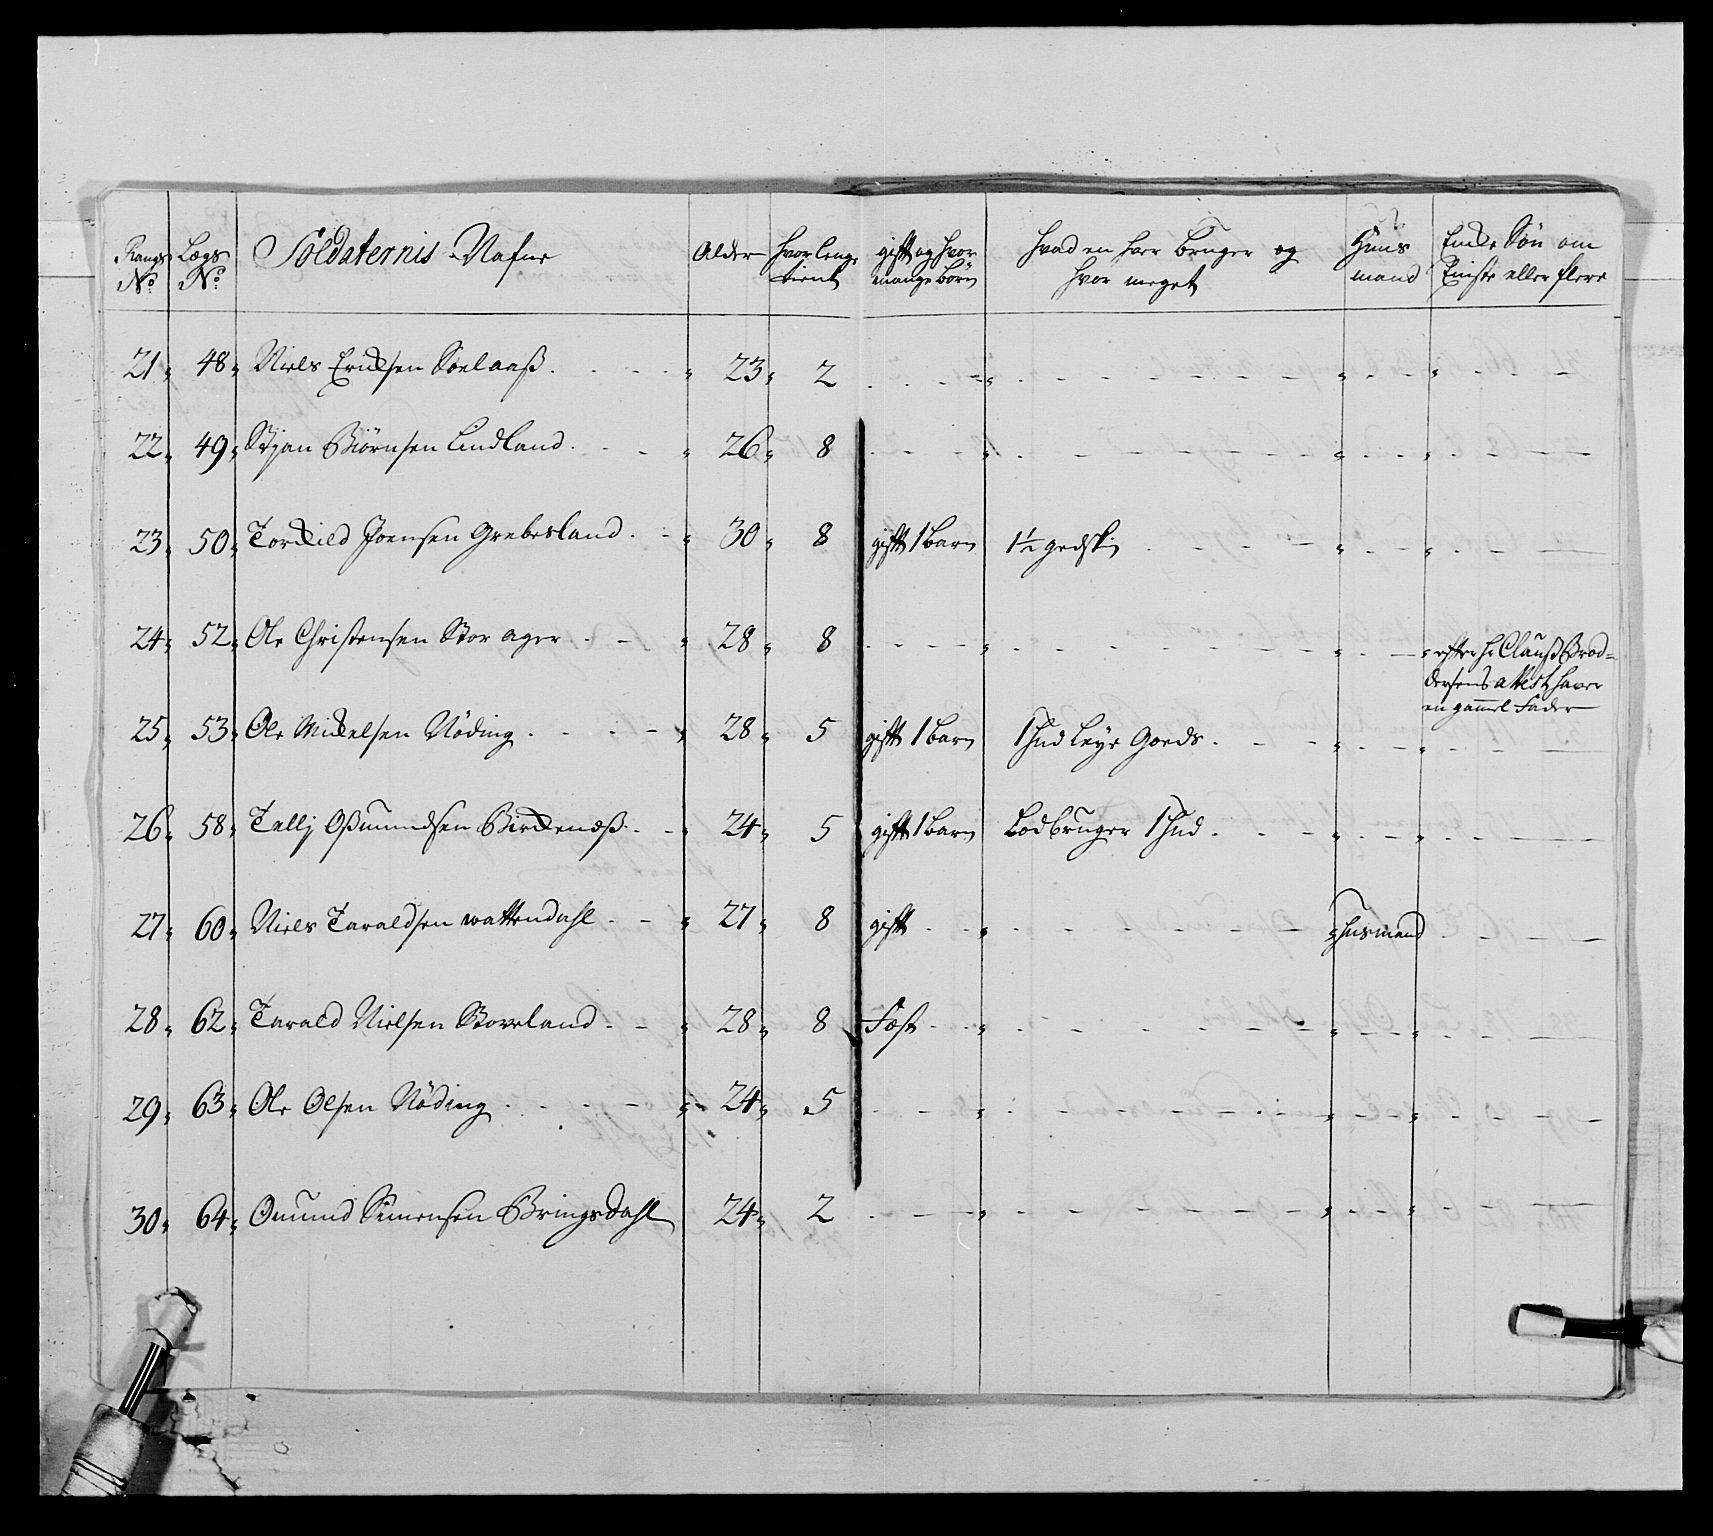 Rangs No Lægs No Soldaternis Nafne Alder hvor lenge tient gift og hvor mange börn hvad en hver bruger og hvor meget Huus mand Encke Søn om Eniste eller flere
21 48 Niels Ericksen Soelaaß 23 2
22 49 Stjan Biörnsen Lindland 26 8
23 50 Torckild Joensen Grebesland 30 8 gift 1 barn 1½ gedsk:
24 52 Ole Christensen Stor ager 28 8 efter hr Clauß Brod=
dersens attest haver
en gammel Fader
25 53 Ole Mickelsen Nöding 28 5 gift 1 barn 1 hud Leye Goeds
26 58 Tellj Oßmundsen Birckenæß 24 5 gift 1 barn Lodbruger 1 hud
27 60 Niels Taraldsen wattendahl 27 8 gift husmand
28 62 Tarald Nielsen Stoveland 28 8 Fæst
29 63 Ole Olsen Nöding 24 5
30 64 Omund Simensen Bringsdahl 24 2